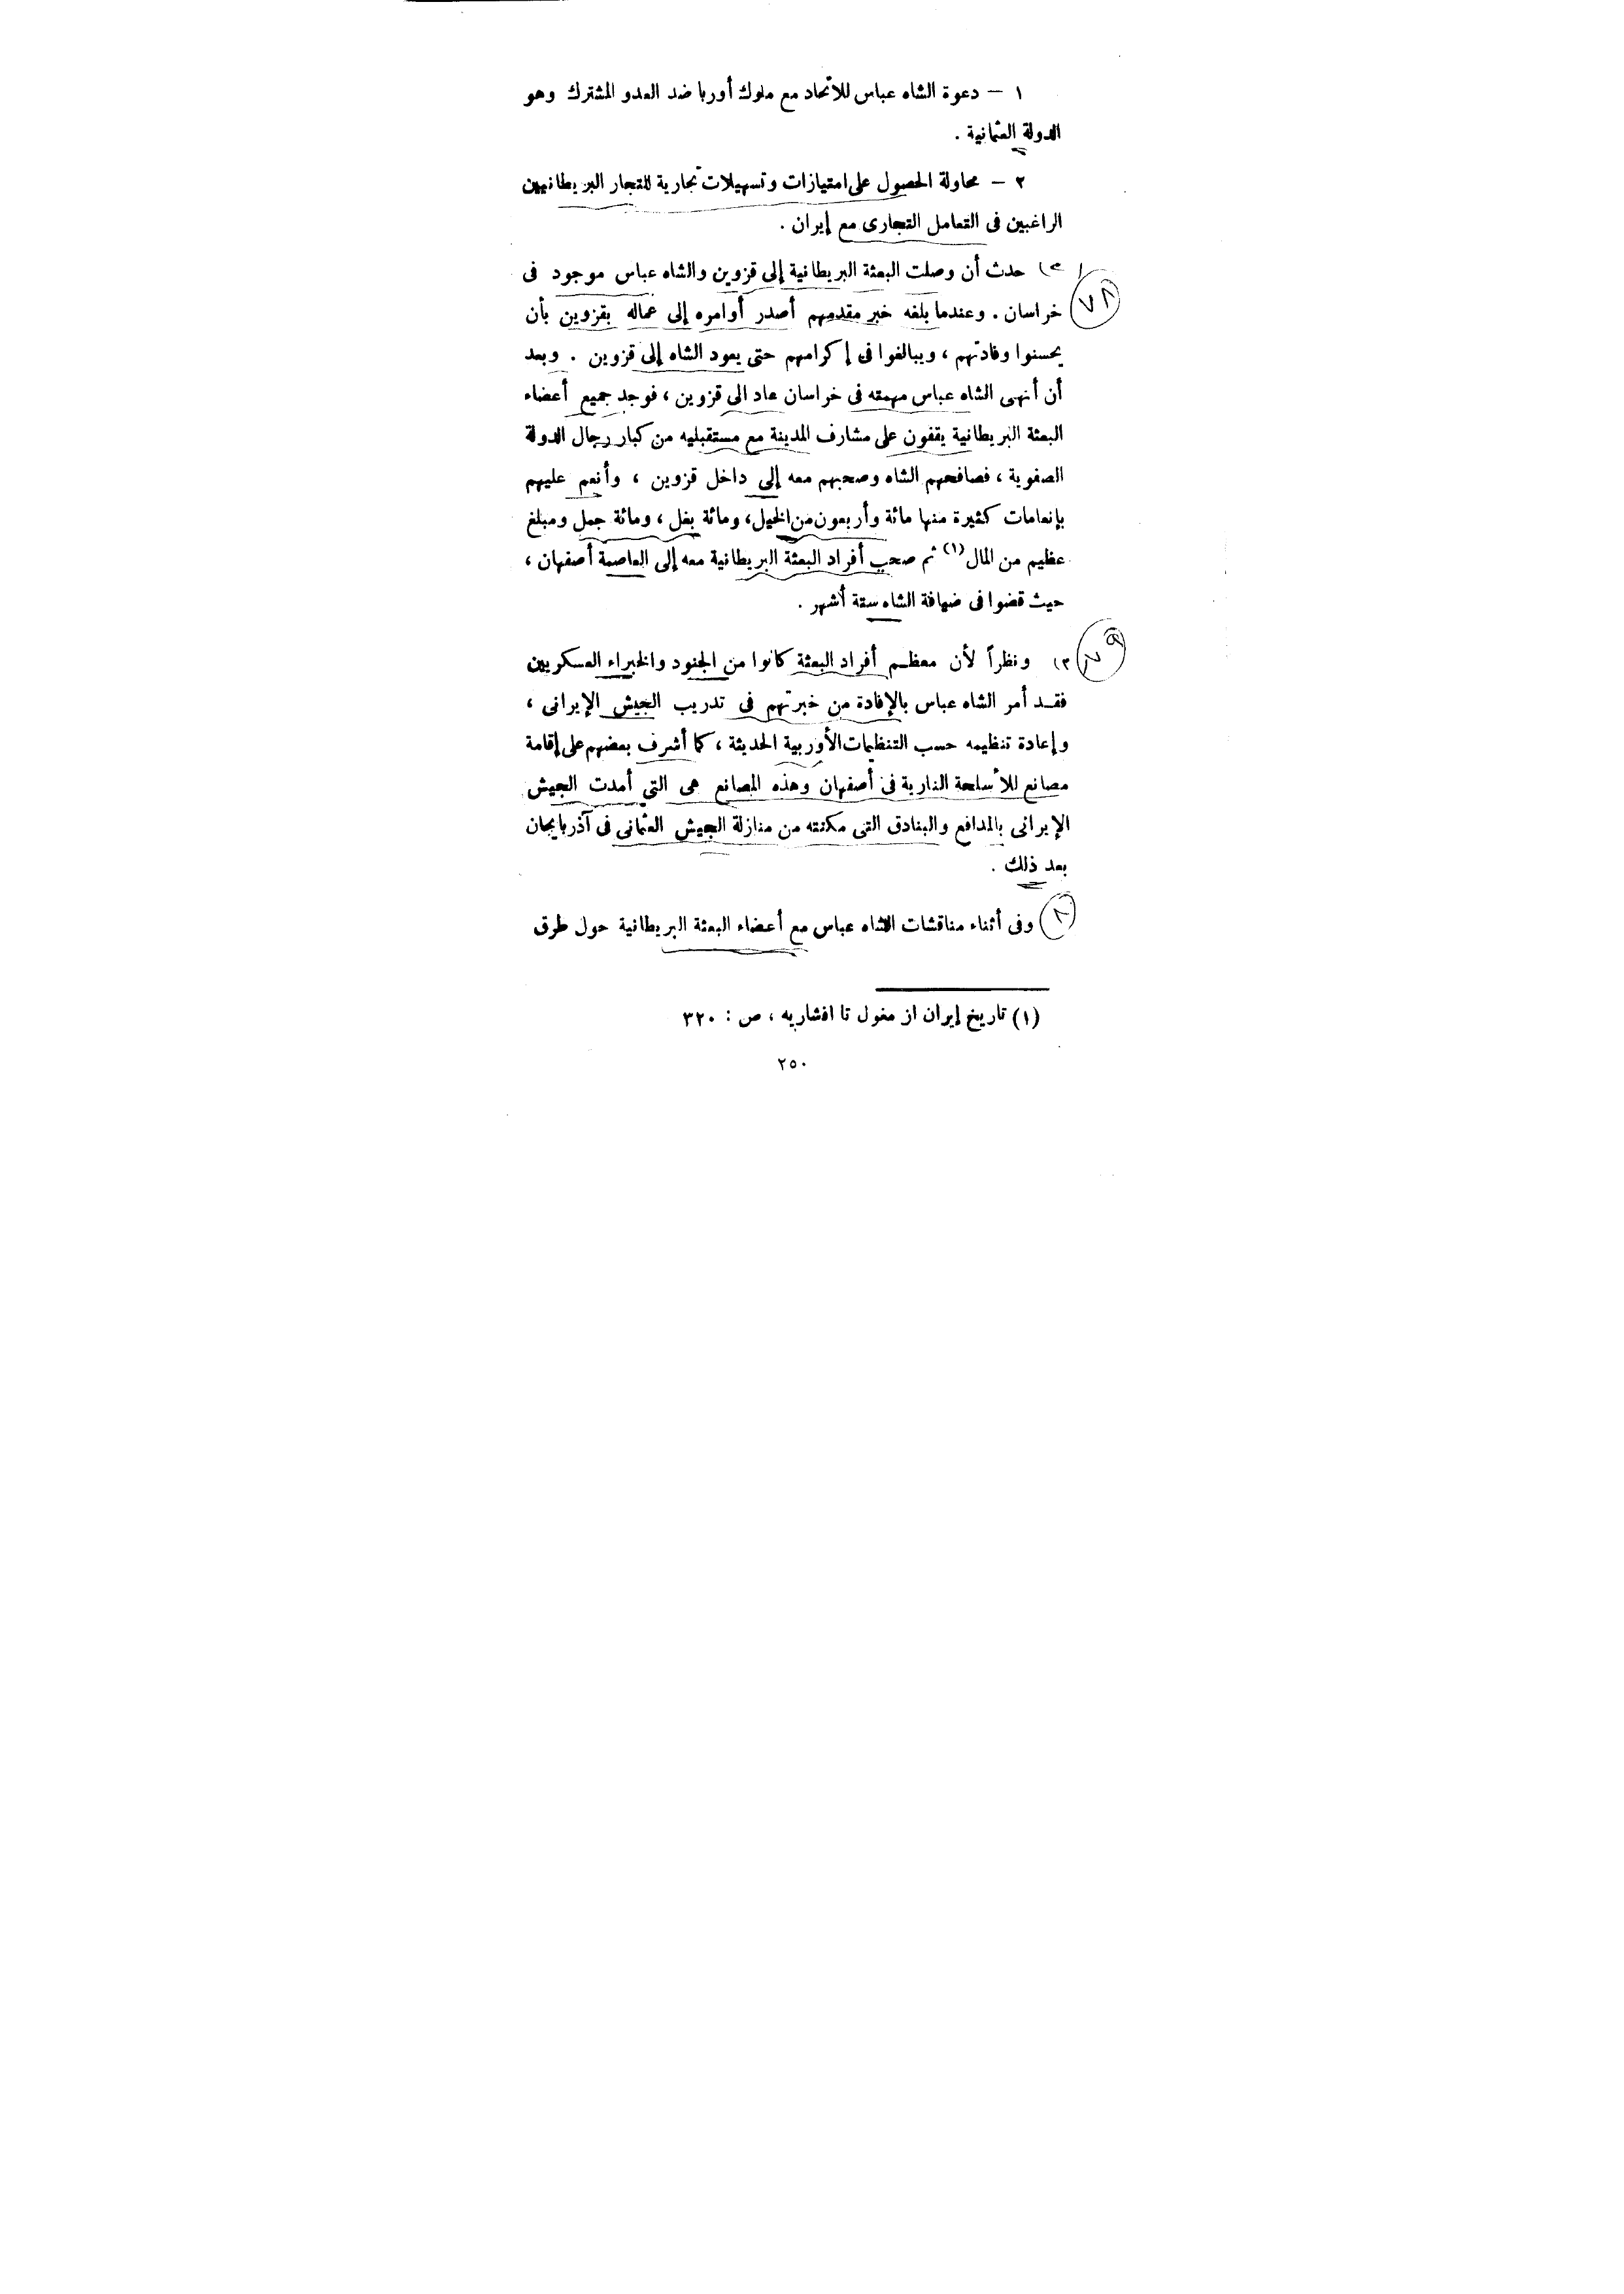 ١ – دعوة الشاه عباس للاتحاد مع ملوك أوربا ضد العدو المشترك وهو
الدولة العثمانية .
٢ – محاولة الحصول على امتيازات وتسهيلات تجارية للتجار البريطانيين
الراغبين فى التعامل التجارى مع إيران .
حدث أن وصلت البعثة البريطانية إلى قزوين والشاه عباس موجود فى
٧٨
خراسان . وعندما بلغه خبر مقدمهم أصدر أوامره إلى عماله بقزوين بأن
يحسنوا وفادتهم ، ويبالغوا فى إكرامهم حتى يعود الشاه إلى قزوين . وبعد
أن أنهى الشاه عباس مهمته فى خراسان عاد الى قزوين ، فوجد جميع أعضاء
البعثة البريطانية يقفون على مشارف المدينة مع مستقبليه من كبار رجال الدولة
الصفوية ، فصافحهم الشاه وصحبهم معه إلى داخل قزوين ، وأنعم عليهم
بإنعامات كثيرة منها مائة وأربعون من الخيل ، ومائة بغل ، ومائة جمل ومبلغ
عظيم من المال (١) ثم صحب أفراد البعثة البريطانية معه إلى العاصمة أصفهان ،
حيث قضوا فى ضيافة الشاه ستة أشهر .
ونظراً لأن معظم أفراد البعثة كانوا من الجنود والخبراء العسكريين
فقد أمر الشاه عباس بالإفادة من خبرتهم فى تدريب الجيش الإيرانى ،
وإعادة تنظيمه حسب التنظيمات الأوربية الحديثة ، كما أشرف بعضهم على إقامة
مصانع للأسلحة النارية فى أصفهان وهذه المصانع هى التي أمدت الجيش
الإيرانى بالمدافع والبنادق التى مكنته من منازلة الجيش العثمانى فى آذربايجان
بعد ذلك .
وفى أثناء مناقشات الشاه عباس مع أعضاء البعثة البريطانية حول طرق
(١) تاريخ إيران از مغول تا افشاريه ، ص : ٣٢٠
٢٥٠